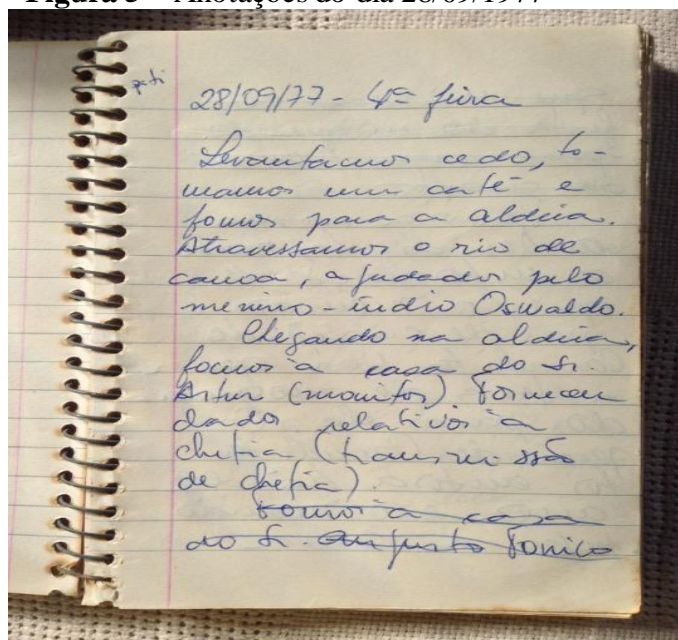 Figura 3 – Anotações do dia 28/09/1977
28/09/77 - 4ª feira
Levantamos cedo, to-
mamos um café e
fomos para a aldeia.
Atravessamos o rio de
canoa, ajudados pelo
menino-índio Oswaldo.
Chegando na aldeia,
fomos à casa do Sr.
Artur (monitor) Forneceu
dados relativos à
chefia (transmissão
de chefia).
Fomos à casa
do Sr. Augusto Tonico